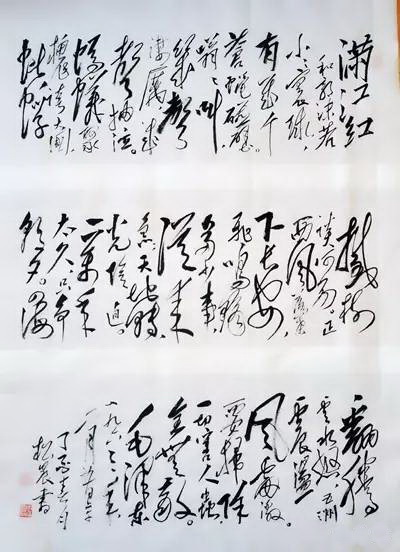 满江红
和郭沫若
小小寰球，
有几个
苍蝇碰壁。
嗡嗡叫，
几声
凄厉，几
声抽泣。
蚂蚁缘
槐夸大国，
蚍蜉
撼树
谈何易。正
西风落叶
下长安，
飞鸣镝。
多少事，
从来
急。天地转，
光阴迫。
一万年
太久，只争
朝夕。四海
翻腾
云水怒，五洲
震荡
风雷激。
要扫除
一切害人虫，
全无敌。
毛泽东
一九六三年
一月九日
书